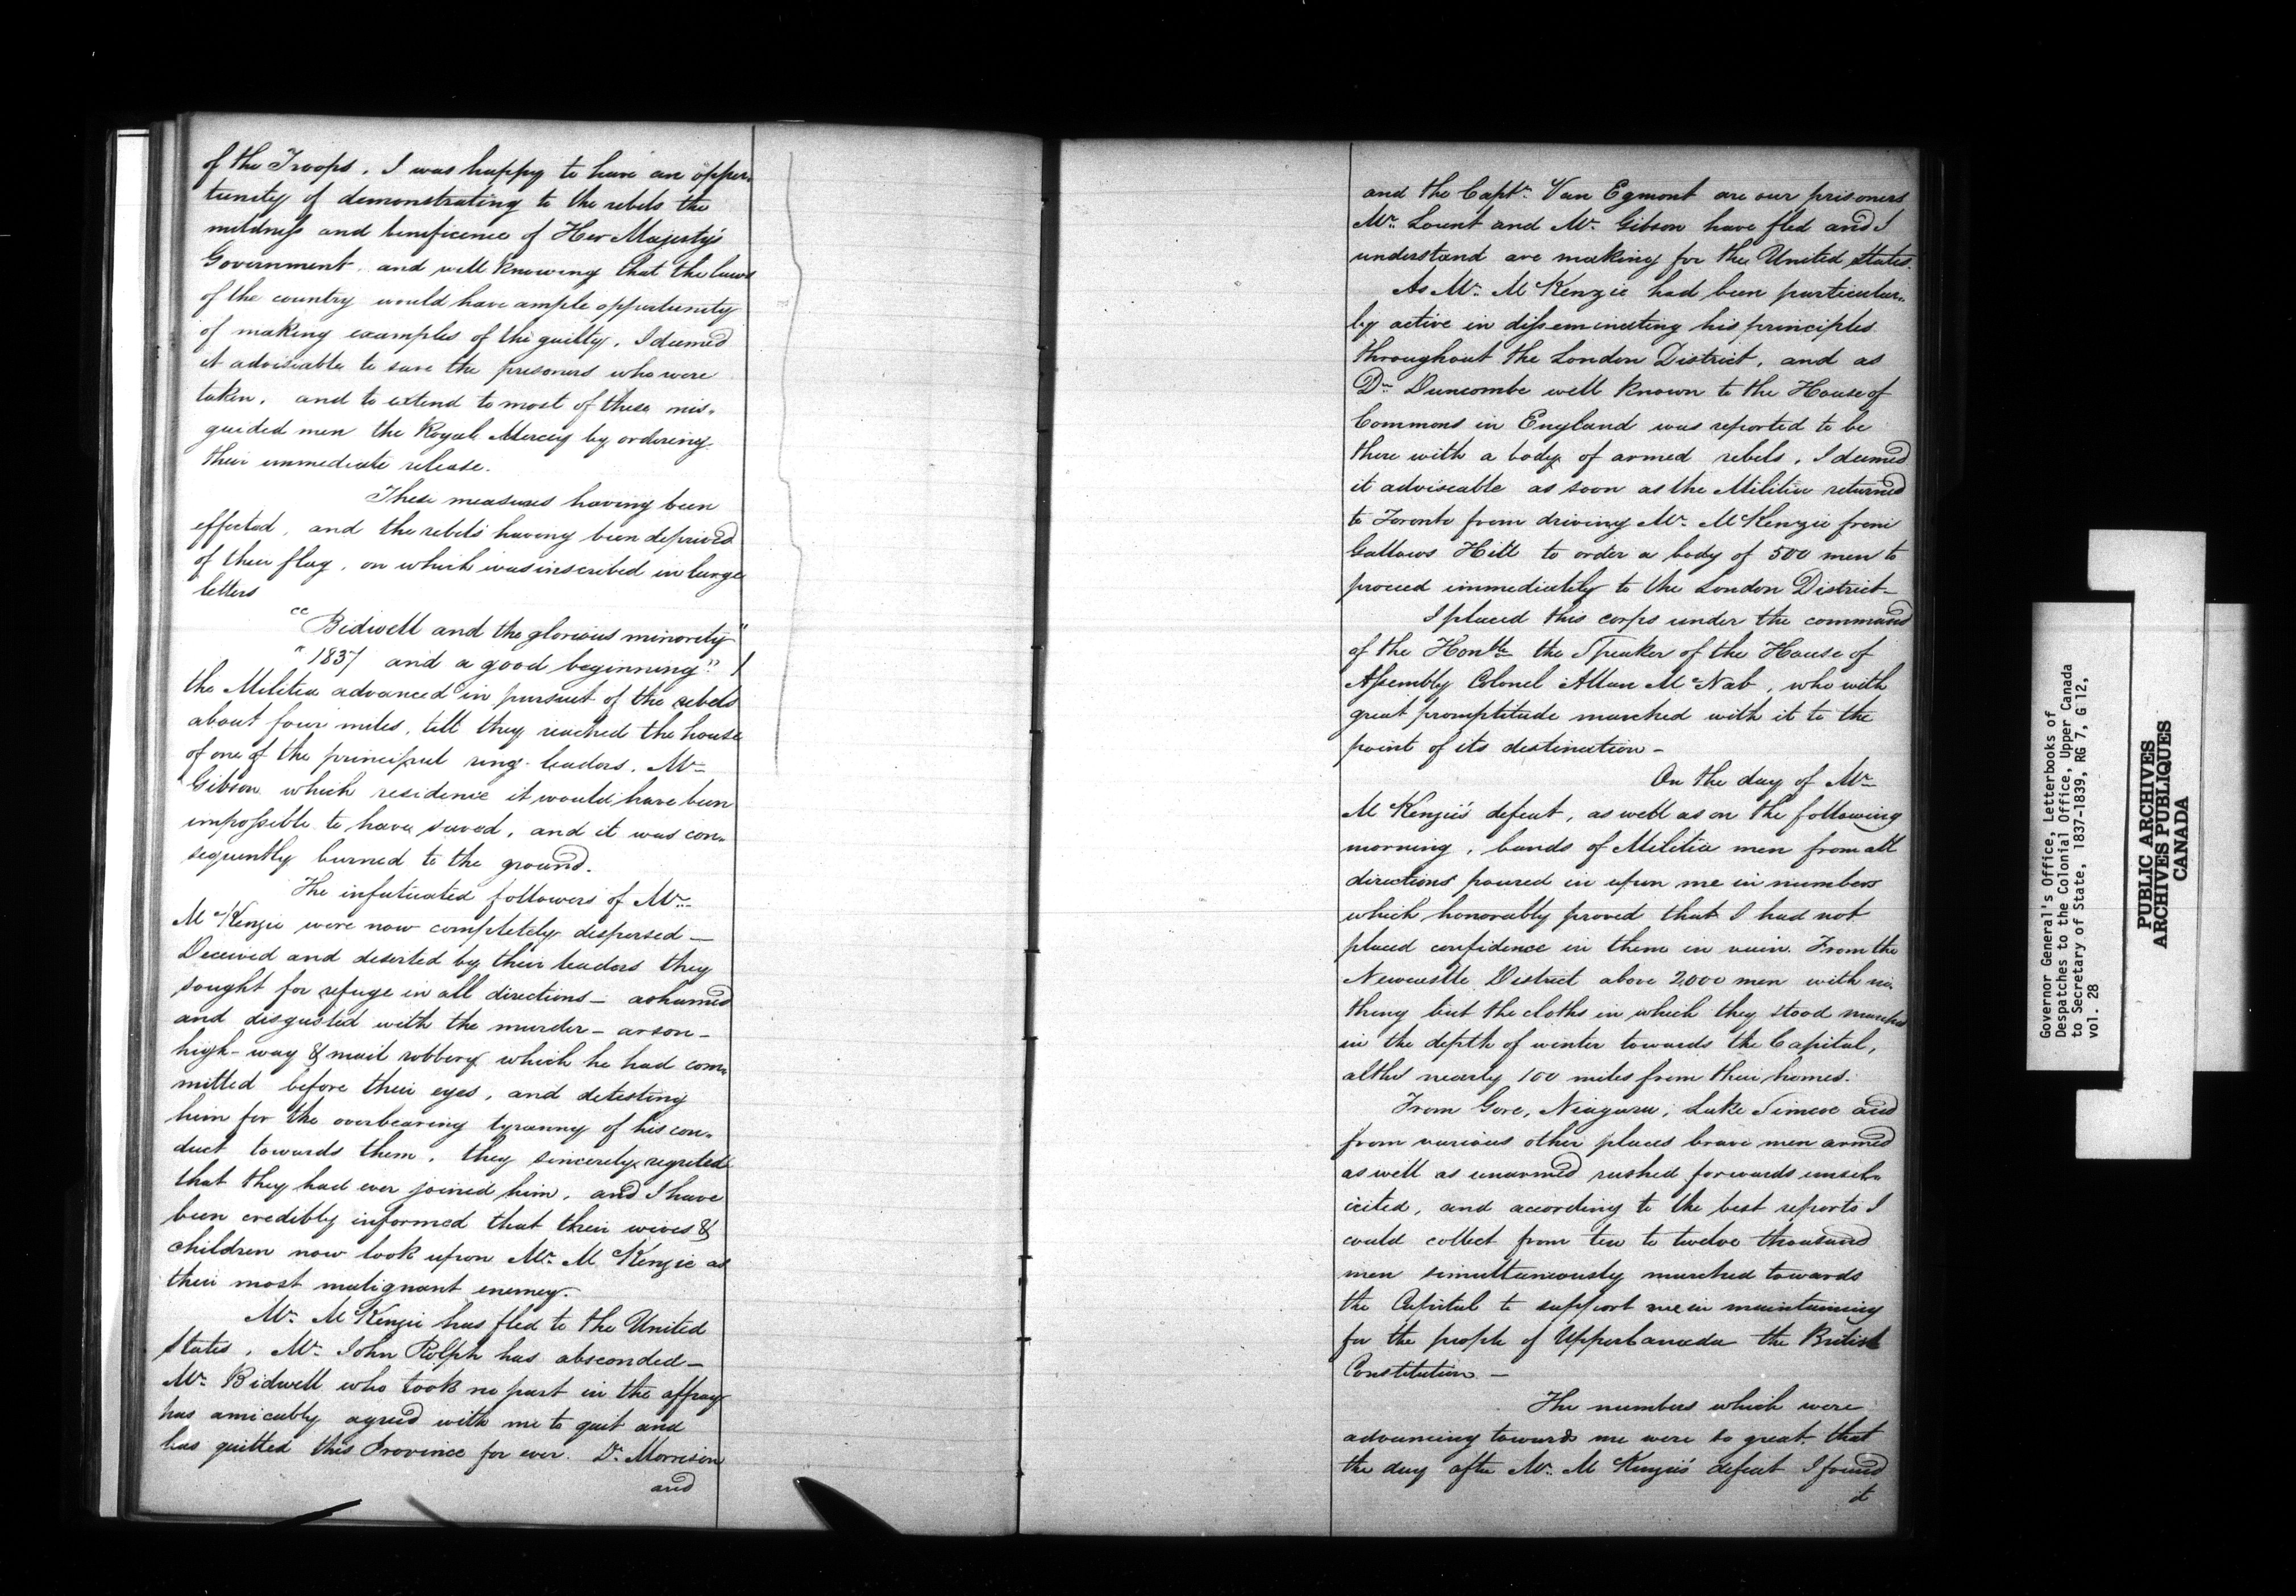 of the Troops. I was happy to have an oppor-
tunity of demonstrating to the rebels the
mildness and beneficence of Her Majesty's
Government, and well knowing that the laws
of the country would have ample opportunity
of making examples of the guilty, I deemed
it adviseable to save the prisoners who were
taken, and to extend to most of these mis-
guided men the Royal Mercy by ordering
their immediate release.
These measures having been
effected, and the rebels having been deprived
of their flag, on which was inscribed in large
letters
"Bidwell and the glorious minority"
"1837 and a good beginning"
the Militia advanced in pursuit of the rebels
about four miles, till they reached the house
of one of the principal ring-leaders, Mr.
Gibson which residence it would have been
impossible to have saved, and it was con-
sequently burned to the ground.
The infatuated followers of Mr.
McKenzie were now completely dispersed—
Deceived and deserted by their leaders they
sought for refuge in all directions— ashamed
and disgusted with the murder— arson—
high-way & mail robbery which he had com-
mitted before their eyes, and detesting
him for the overbearing tyranny of his con-
duct towards them, they sincerely regreted
that they had ever joined him, and I have
been credibly informed that their wives &
children now look upon Mr. McKenzie as
their most malignant enemy.
Mr. McKenzie has fled to the United
States, Mr. John Rolph has absconded—
Mr. Bidwell who took no part in the affray
has amicably agreed with me to quit and
has quitted this Province for ever. Dr. Morrison
and
and the Captn. Van Egmont are our prisoners
Mr. Lount and Mr. Gibson have fled and I
understand are making for the United States.
As Mr. McKenzie had been particular-
ly active in disseminating his principles
throughout the London District, and as
Dr. Duncombe well known to the House of
Commons in England was reported to be
there with a body of armed rebels, I deemed
it adviseable as soon as the Militia returned
to Toronto from driving Mr. McKenzie from
Gallows Hill to order a body of 500 men to
proceed immediately to the London District—
I placed this corps under the command
of the Honble. the Speaker of the House of
Assembly Colonel Allan McNab, who with
great promptitude marched with it to the
point of its destination—
On the day of Mr.
McKenzie's defeat, as well as on the following
morning, bands of Militia men from all
directions poured in upon me in numbers
which honorably proved that I had not
placed confidence in them in vain. From the
Newcastle District above 2,000 men with no-
thing but the cloths in which they stood marched
in the depth of winter towards the Capital,
altho' nearly 100 miles from their homes.
From Gore, Niagara, Lake Simcoe and
from various other places brave men armed
as well as unarmed rushed forwards unsol-
icited, and according to the best reports I
could collect from ten to twelve thousand
men simultaneously marched towards
the Capital to support me in maintaining
for the people of Upper Canada the British
Constitution—
The numbers which were
advancing towards me were so great, that
the day after Mr. McKenzie's defeat I found
it
Governor General's Office, Letterbooks of
Despatches to the Colonial Office, Upper Canada
to Secretary of State, 1837-1839, RG 7, G 12,
vol. 28
PUBLIC ARCHIVES
ARCHIVES PUBLIQUES
CANADA